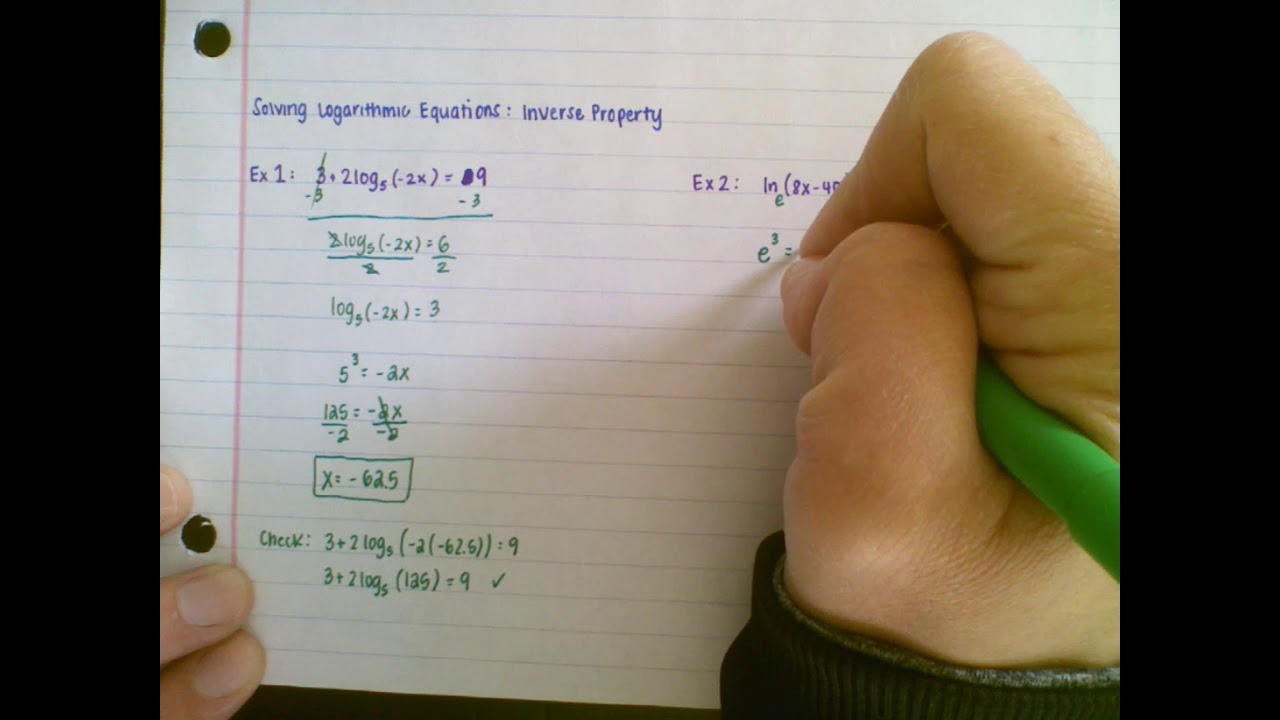 Solving Logarithmic Equations: Inverse Property
Ex 1: 3 + 2log₅(-2x) = 9
-3 -3
2log₅(-2x) = 6
2 2
log₅(-2x) = 3
5³ = -2x
125 = -2x
-2 -2
x = -62.5
Check: 3+2log₅(-2(-62.5)) = 9
3+2log₅(125) = 9 ✓
Ex 2: lnₑ(8x-40
e³ =